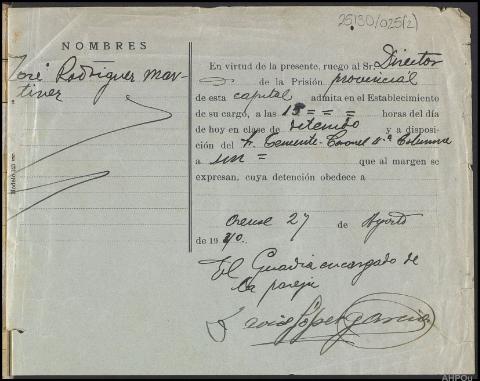 25130/025(2)
NOMBRES
José Rodríguez Mar-
tinez
Modelo
En virtud de la presente, ruego al Sr. Director
de la Prisión provincial
de esta capital admita en el Establecimiento
de su cargo, a las 15 = = = horas del día
de hoy en clase de detenido y a disposi-
ción del Sr. Teniente-Coronel 4ª Columna
a un = que al margen se
expresan, cuya detención obedece a
Orense 27 de Agosto
de 1940.
El Guardia encargado de
la pareja
López García
AHPOu